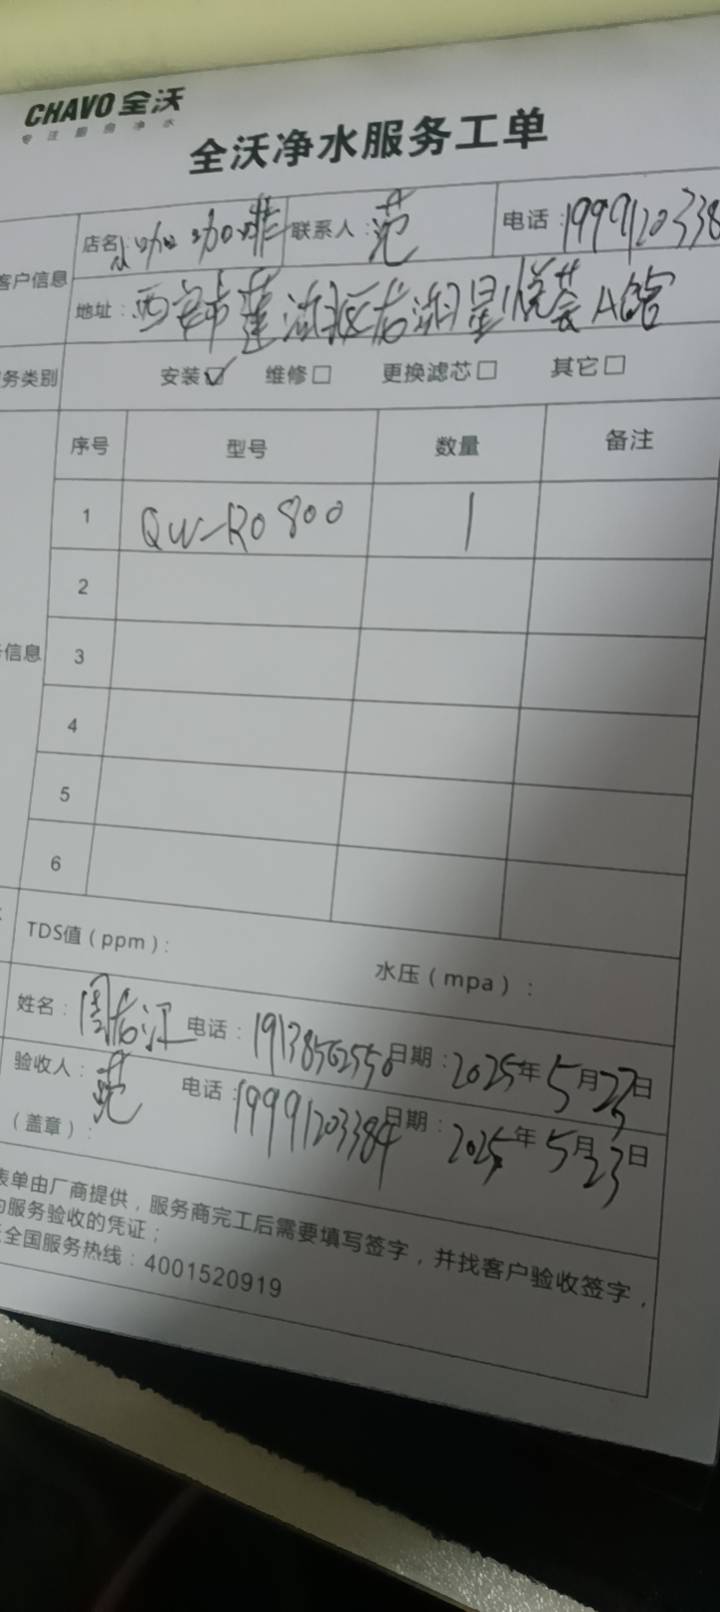 CHAVO 全沃
专注厨房净水
全沃净水服务工单
客户信息
店名: 小咖咖啡 联系人: 范 电话: 1999120338
地址: 西安市莲湖区龙湖星悦荟A馆
务类别 安装☑ 维修□ 更换滤芯□ 其它□
序号 型号 数量 备注
1 QW-RO800 1
2
信息
3
4
5
6
TDS值(ppm): 水压(mpa):
姓名: 周龙江 电话: 19138562558 日期: 2025年5月23日
验收人: 范 电话: 19991203384 日期: 2025年5月23日
(盖章):
表单由厂商提供,服务商完工后需要填写签字,并找客户验收签字,
服务验收的凭证;
全国服务热线:4001520919